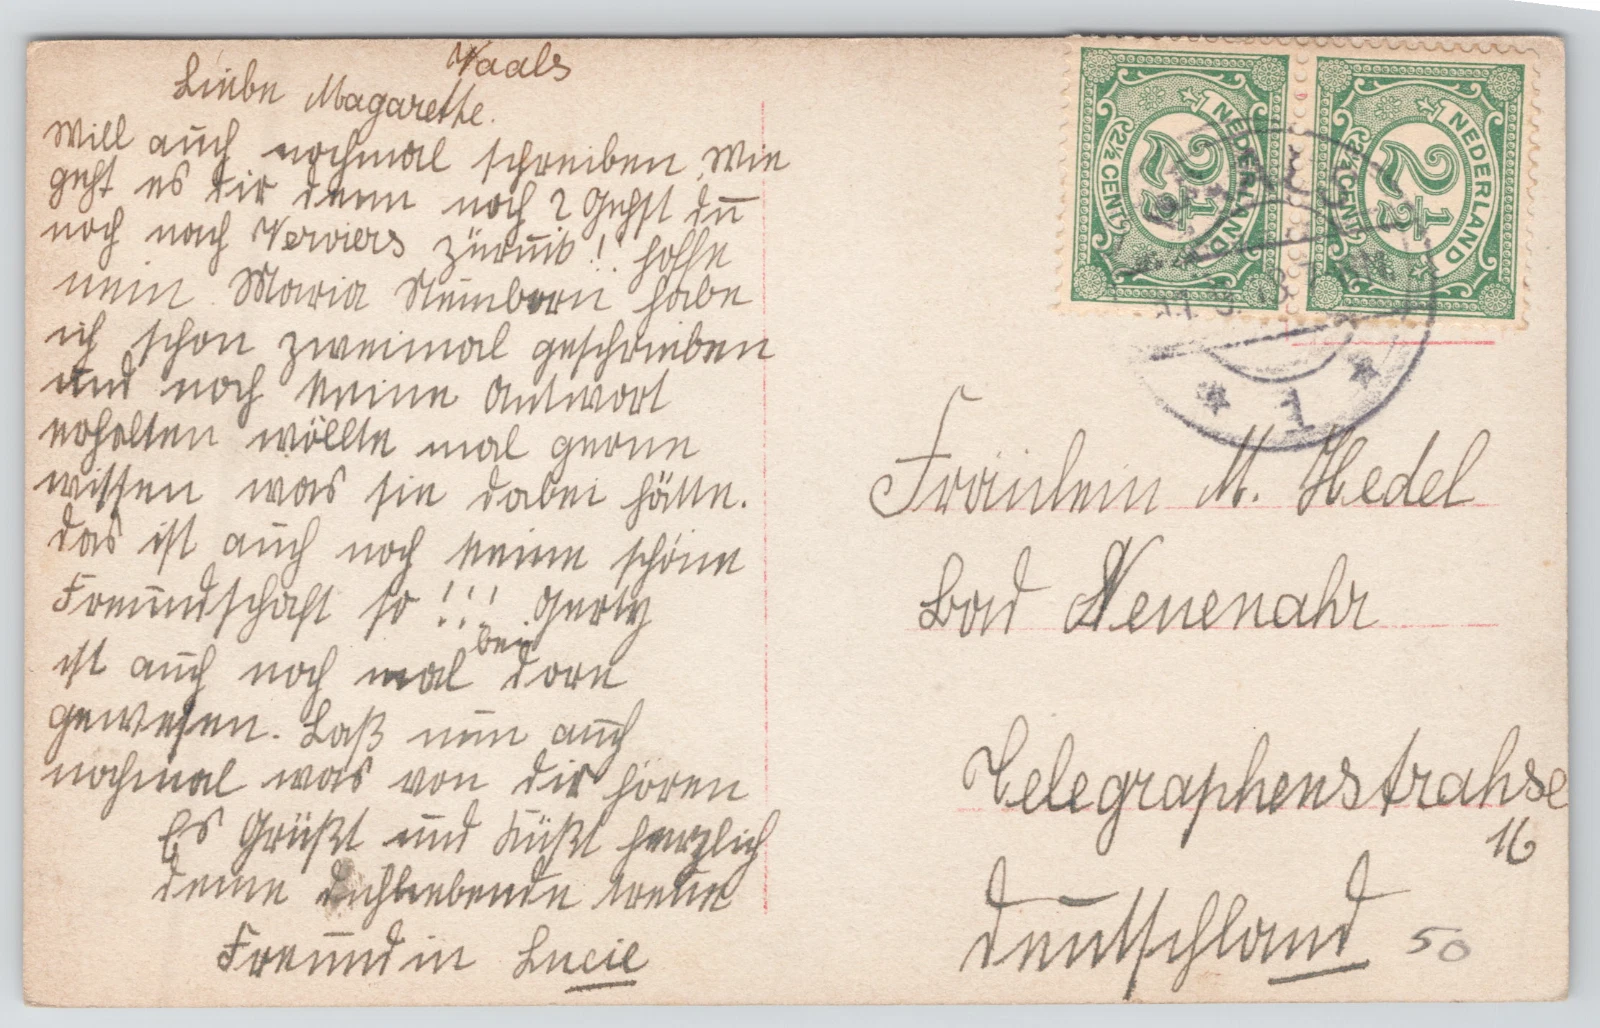 Vaals
Liebe Magarethe.
Will auch nochmal schreiben, Wie
geht es dir denn noch? Gehst du
noch nach Verviers zürück!! hoffe
nein. Maria Steinborn habe
ich schon zweimal geschrieben
und noch keine Antwort
erhalten wöllte mal gerne
wissen was sie dabei hätte.
Das ist auch noch keine schöne
Freundschaft so!!! Gerty
ist auch noch mal bei dore
gewesen. Laß nun auch
nochmal was von dir hören
Es Grüßt und Küßt herzlich
deine dichliebende treue
Freundin Lucie
NEDERLAND
2½
2½ CENT
NEDERLAND
2½
2½ CENT
1
Fräulein M. Hedel
Bad Neuenahr
Telegraphenstrahse
16
Deutschland
50